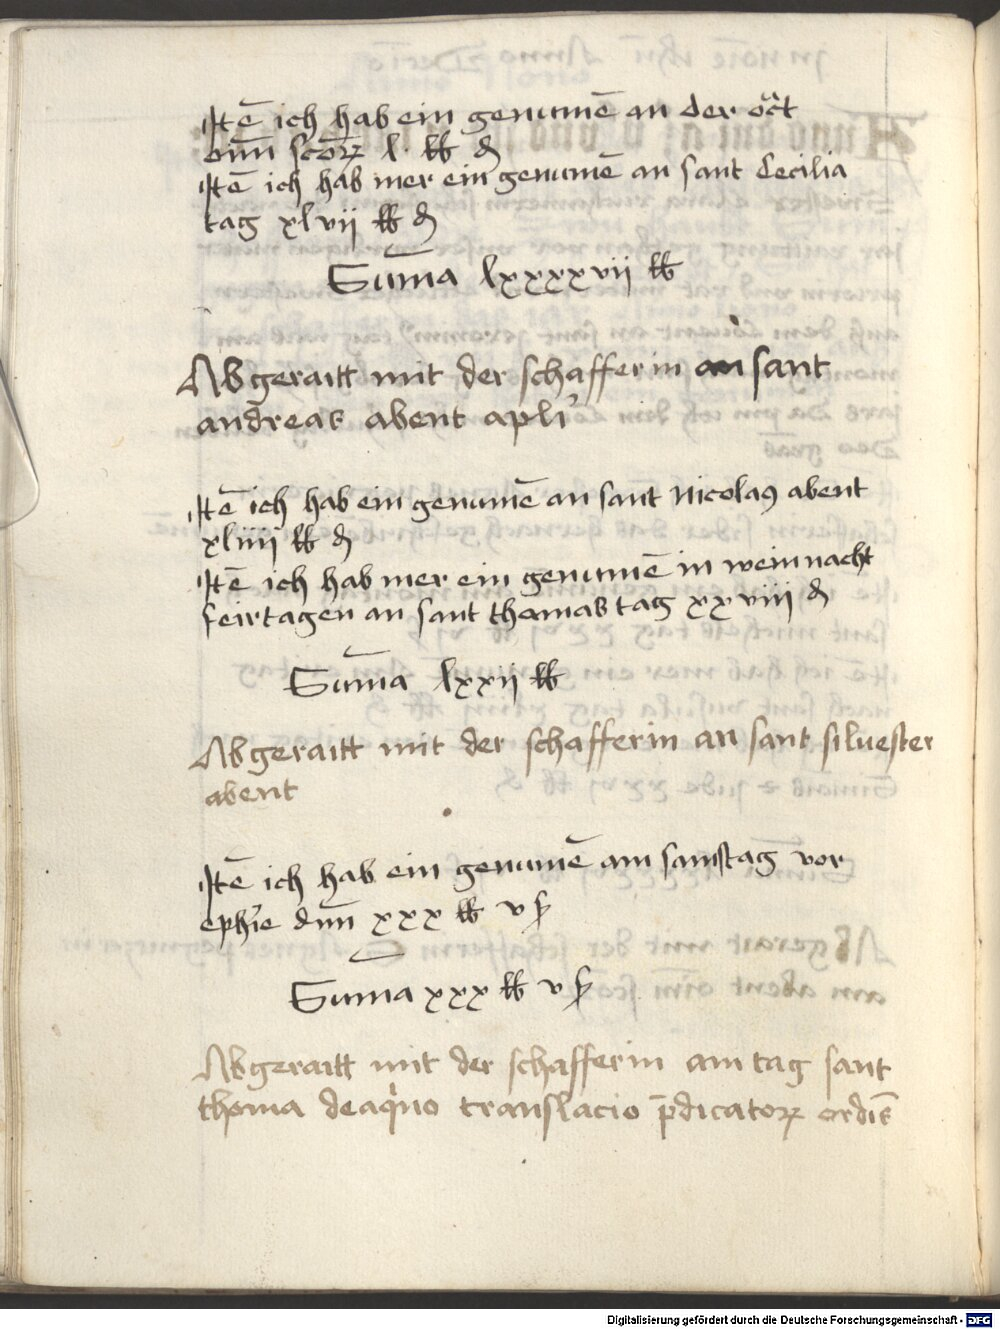 Itē ich hab ein genumē an der oct
oīm scōrꝝ l. lb ₰
Itē ich hab mer ein genumē an sant Cecilia
tag xlvii lb ₰
Sum̄a lxxxxvii lb
Abgeraitt mit der schafferin an sant
andreas abent apli
Itē ich hab ein genumē an sant Nicolaꝰ abent
xliiii lb ₰
Itē ich hab mer ein genumē in weinnacht
feirtagen an sant thomas tag xxviii ₰
Sum̄a lxxii lb
Abgeraitt mit der schafferin an sant siluester
abent
Itē ich hab ein genumē am samstag vor
eph'ie dn̄i xxx lb v ß
Suma xxx lb v ß
Abgeraitt mit der schafferin am tag sant
thoma deaqͥno translacio p̄dicatorꝝ ordīs
Digitalisierung gefördert durch die Deutsche Forschungsgemeinschaft - DFG